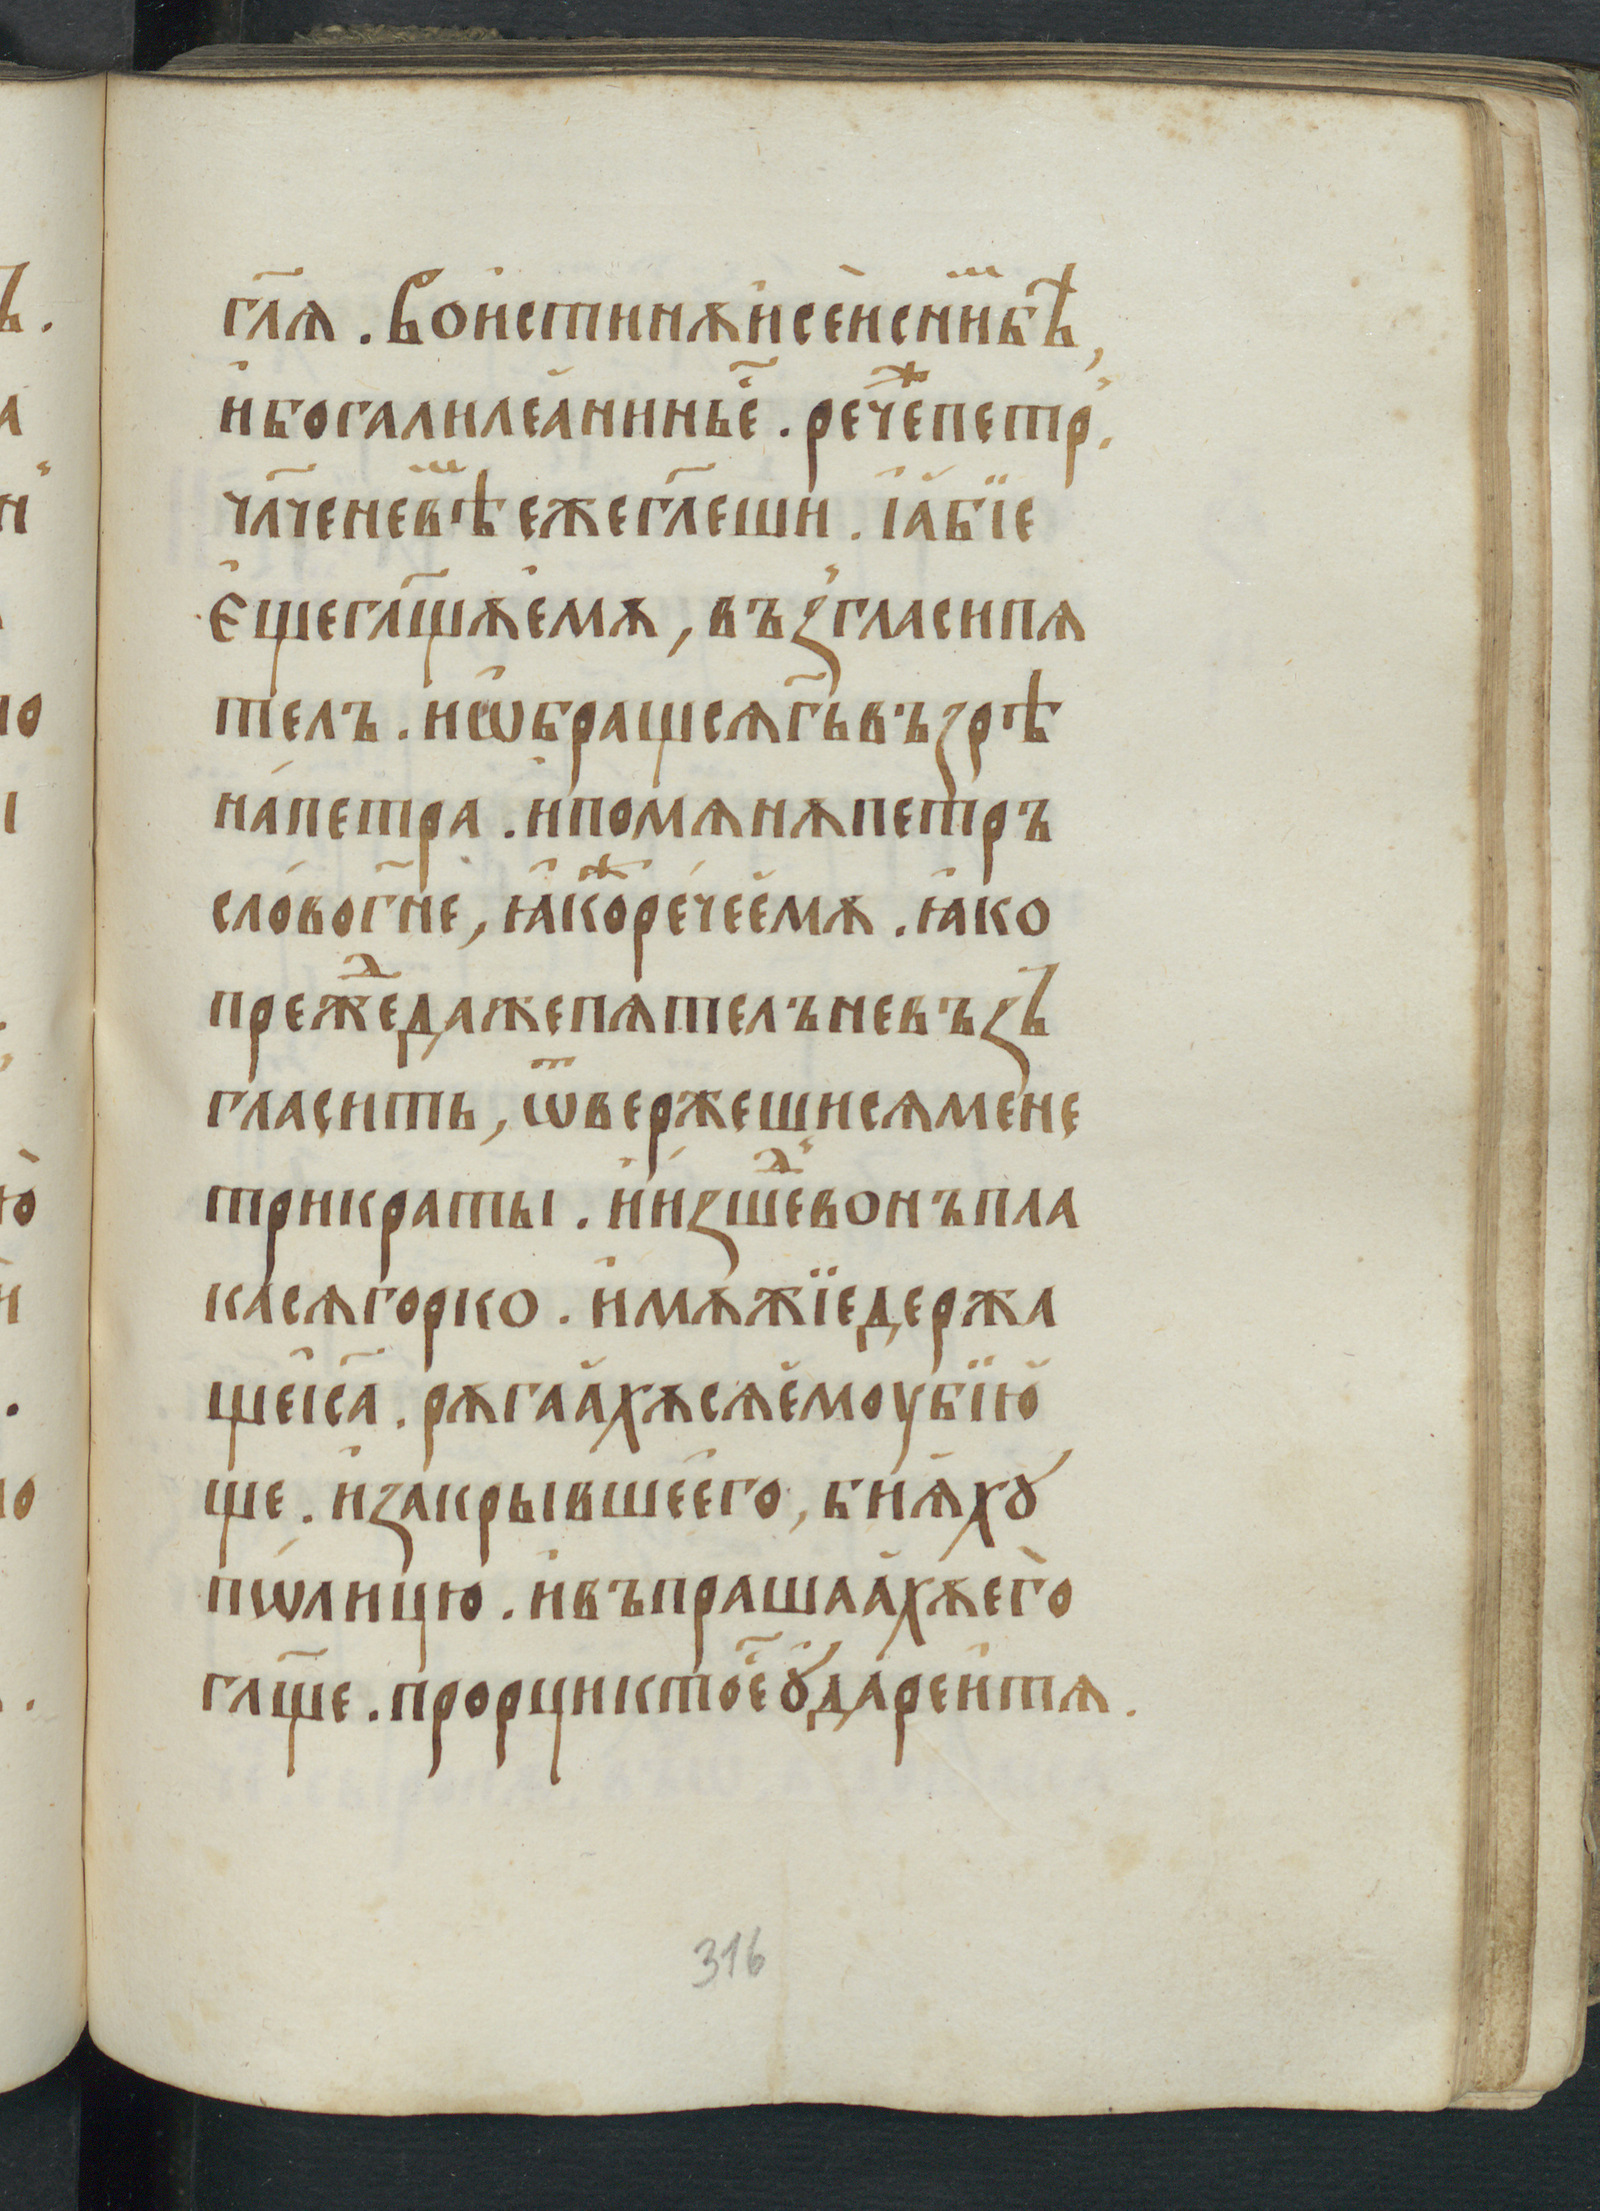 гл҃ѧ . Воистинѫ и сеи с ни́мⷨ бѣ ,
ибо галилеанинь е҃ . рече́ⷤ петр̾ .
чл҃че не вѣⷨ еже гл҃еши . і абїе
Єще гл҃щѫ емѫ , въз̾гласи пѧ
тель . и ѡбращсѧ гь҃ възрѣ
на петра . и помѧнѫ петръ
слово гн҃е , ꙗкоⷤ рече емѫ . ꙗко
прежⷣе даже пѧтелъ не въз̾
гласить , ѿвержешисѧ мене
трикраты . и изшеⷣ вонъ пла
касѧ горко . и мѫжїе держа
щеи іс҃а . рѫгаахѫсѧ емоу бїю
ще . и закрывше его , бияхꙋ
пѡ лицю . и въпрашаахѫ его
гл҃ще . прорци кто е҃ ꙋдареи тѧ .
316